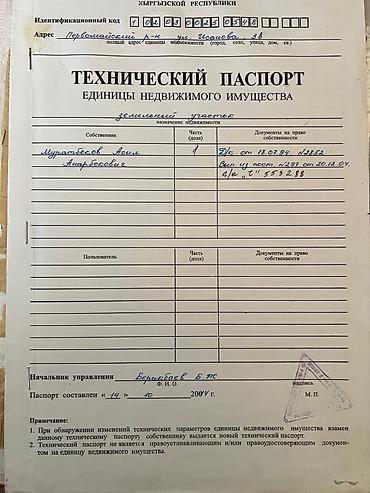 КЫРГЫЗСКОЙ РЕСПУБЛИКИ
Идентификационный код 1 02 03 0025 0548
Адрес Первомайский р-к ул. Исанова, 38
полный адрес единицы недвижимости (город, село, улица, дом, кв.)
ТЕХНИЧЕСКИЙ ПАСПОРТ
ЕДИНИЦЫ НЕДВИЖИМОГО ИМУЩЕСТВА
земельный участок
назначение недвижимости
Собственник Часть (доля) Документы на право собственности
Муратбеков Асил 1 Д/к от 18.07.94. №2852
Анарбекович Вып. из пост. №297 от 20.12.04.
553288
Пользователь Часть (доля) Документы на право собственности
Начальник управления Берикбаев Б.Ж
Ф. И. О. подпись
Паспорт составлен « 14 » 10 2004 г. М. П.
Примечание:
1. При обнаружении изменений технических параметров единицы недвижимого имущества взамен
данному техническому паспорту собственнику выдается новый технический паспорт.
2. Технический паспорт не является правоустанавливающим и/или правоудостоверяющим докумен-
том на единицу недвижимого имущества.